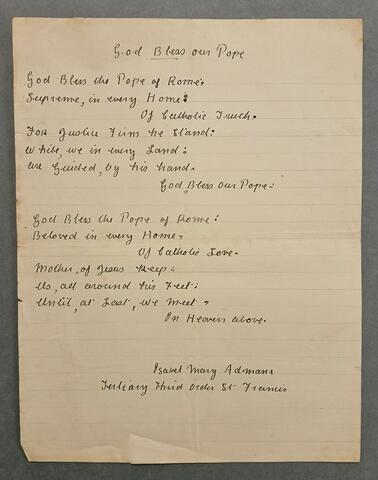 God Bless our Pope
God Bless the Pope of Rome:
Supreme, in every Home:
Of Catholic Truth.
For Justice Firm he Stand:
While, we in every Land:
are Guided, by his hand.
God, Bless our Pope:
God Bless the Pope of Rome:
Beloved in every Home,
Of Catholic Love.
Mother, of Jesus Keep:
Us, all around his Feet:
Until, at Last, we meet,
In Heaven above.
Isabel Mary Admans
Tertiary Third Order St Francis